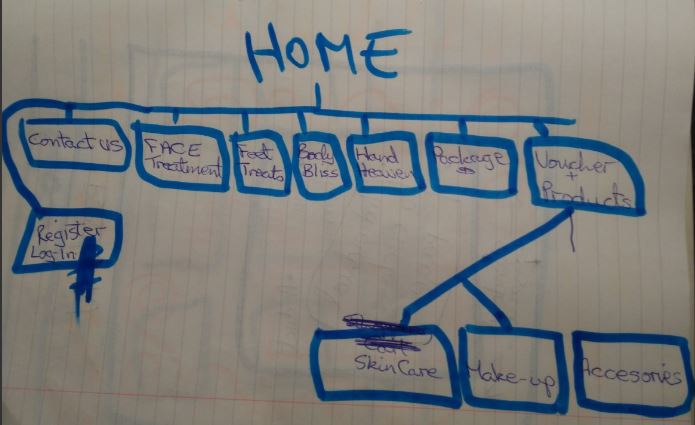 HOME
Contact us
FACE
Treatment
Feet
Treats
Body
Bliss
Hand
Heaven
Package
Voucher
+
Products
Register
Log-In
SkinCare
Make-up
Accesories